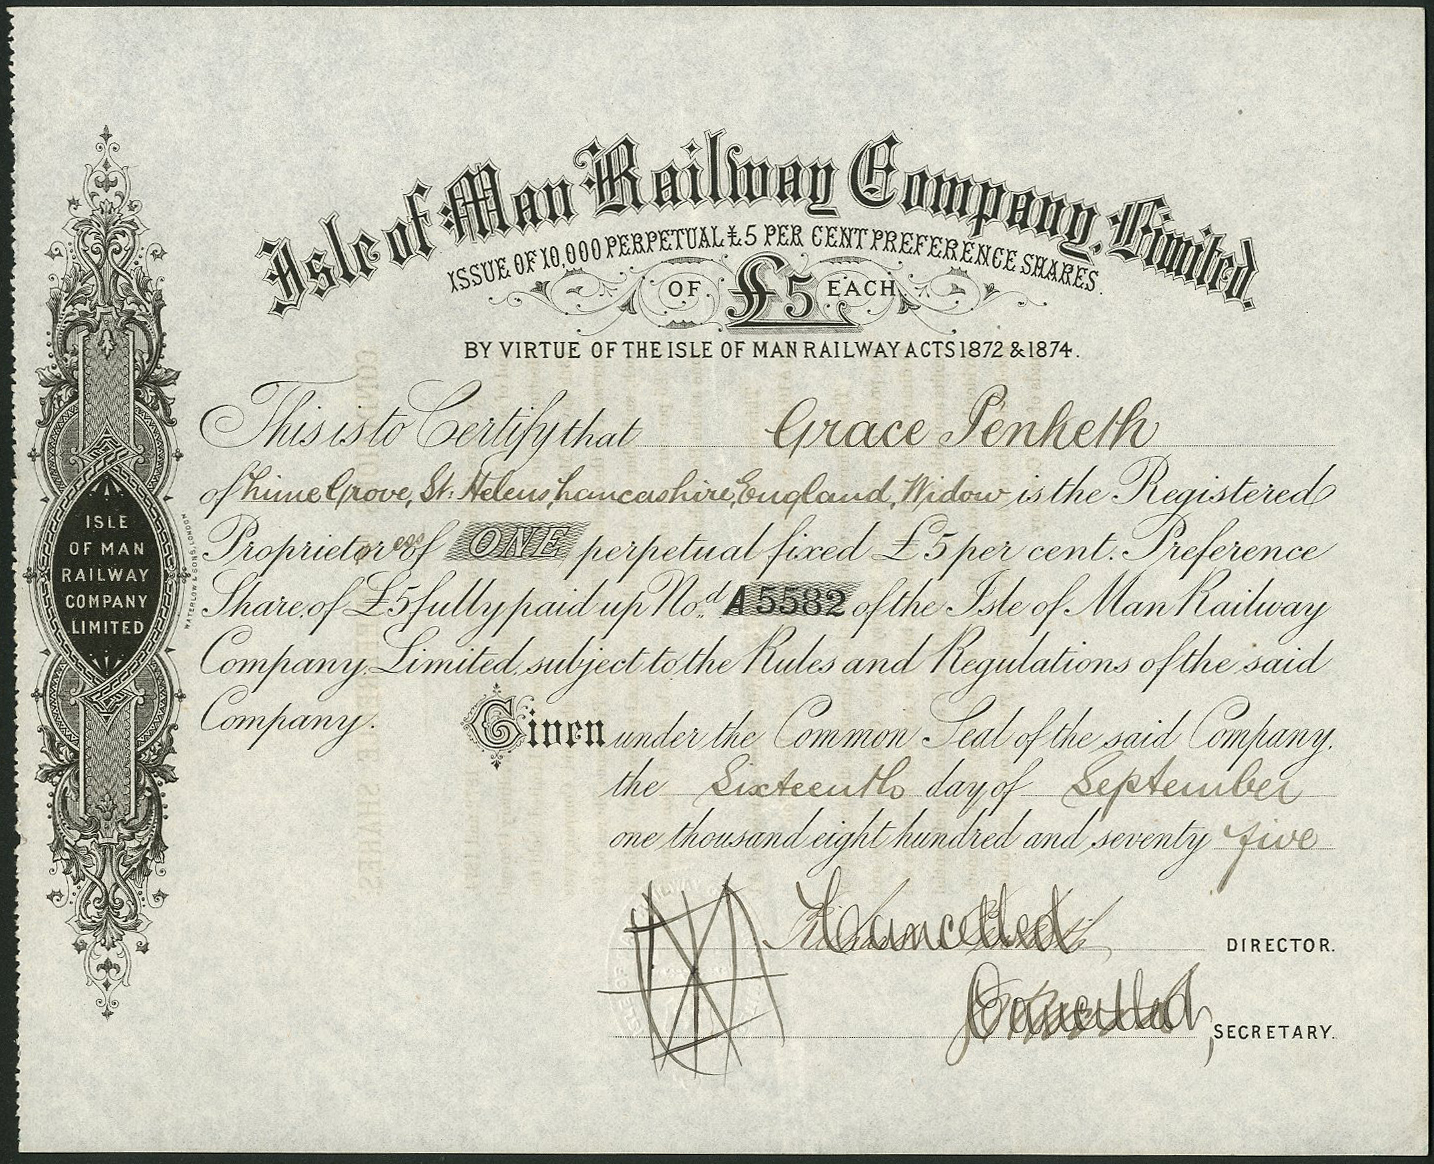 Isle of Man Railway Company, Limited.
ISSUE OF 10,000 PERPETUAL £5 PER CENT PREFERENCE SHARES.
OF £5 EACH
BY VIRTUE OF THE ISLE OF MAN RAILWAY ACTS 1872 & 1874.
This is to Certify that Grace Penketh
of Lime Grove, St. Helens, Lancashire, England, Widow is the Registered
Proprietoress of ONE perpetual fixed £5 per cent. Preference
Share of £5 fully paid up No.d A 5582 of the Isle of Man Railway
Company, Limited, subject to the Rules and Regulations of the said
Company.
Given under the Common Seal of the said Company,
the Sixteenth day of September
one thousand eight hundred and seventy five
Cancelled DIRECTOR.
Cancelled SECRETARY.
ISLE
OF MAN
RAILWAY
COMPANY
LIMITED
WATERLOW & SONS, LONDON